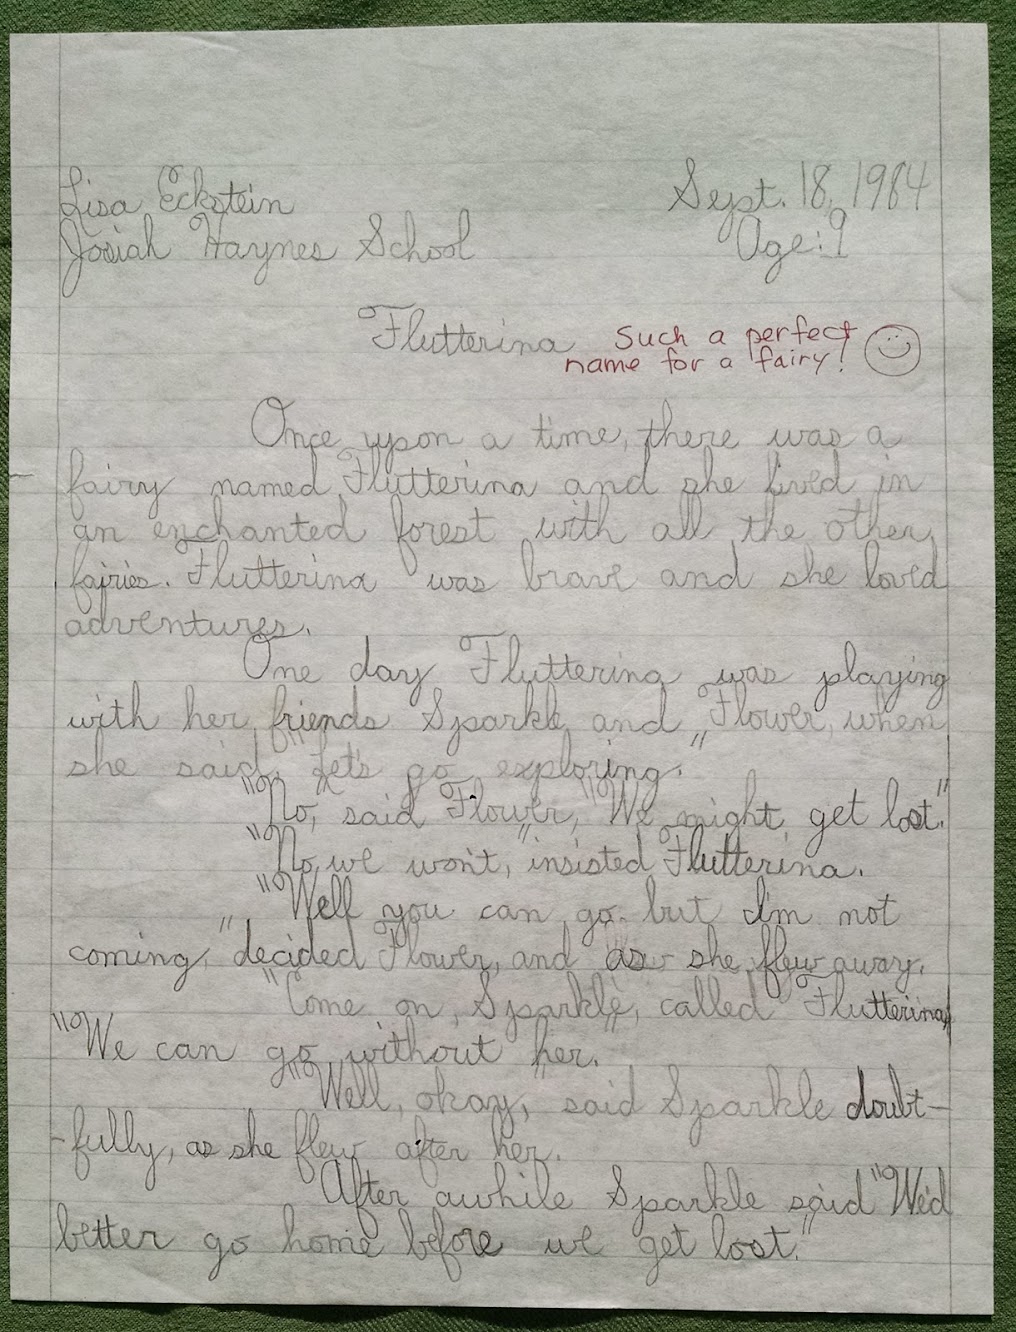 Lisa Eckstein Sept. 18, 1984
Josiah Haynes School Age: 9
Flutterina Such a perfect
name for a fairy!
Once upon a time, there was a
fairy named Flutterina and she lived in
an enchanted forest with all the other
fairies. Flutterina was brave and she loved
adventures.
One day Flutterina was playing
with her friends Sparkle and Flower, when
she said, "Let's go exploring."
"No," said Flower, "We might get lost."
"No, we won't," insisted Flutterina.
"Well you can go but I'm not
coming," decided Flower, and as she flew away.
"Come on, Sparkle", called Flutterina,
"We can go without her.
"Well, okay," said Sparkle doubt-
-fully, as she flew after her.
After awhile Sparkle said "We'd
better go home before we get lost."